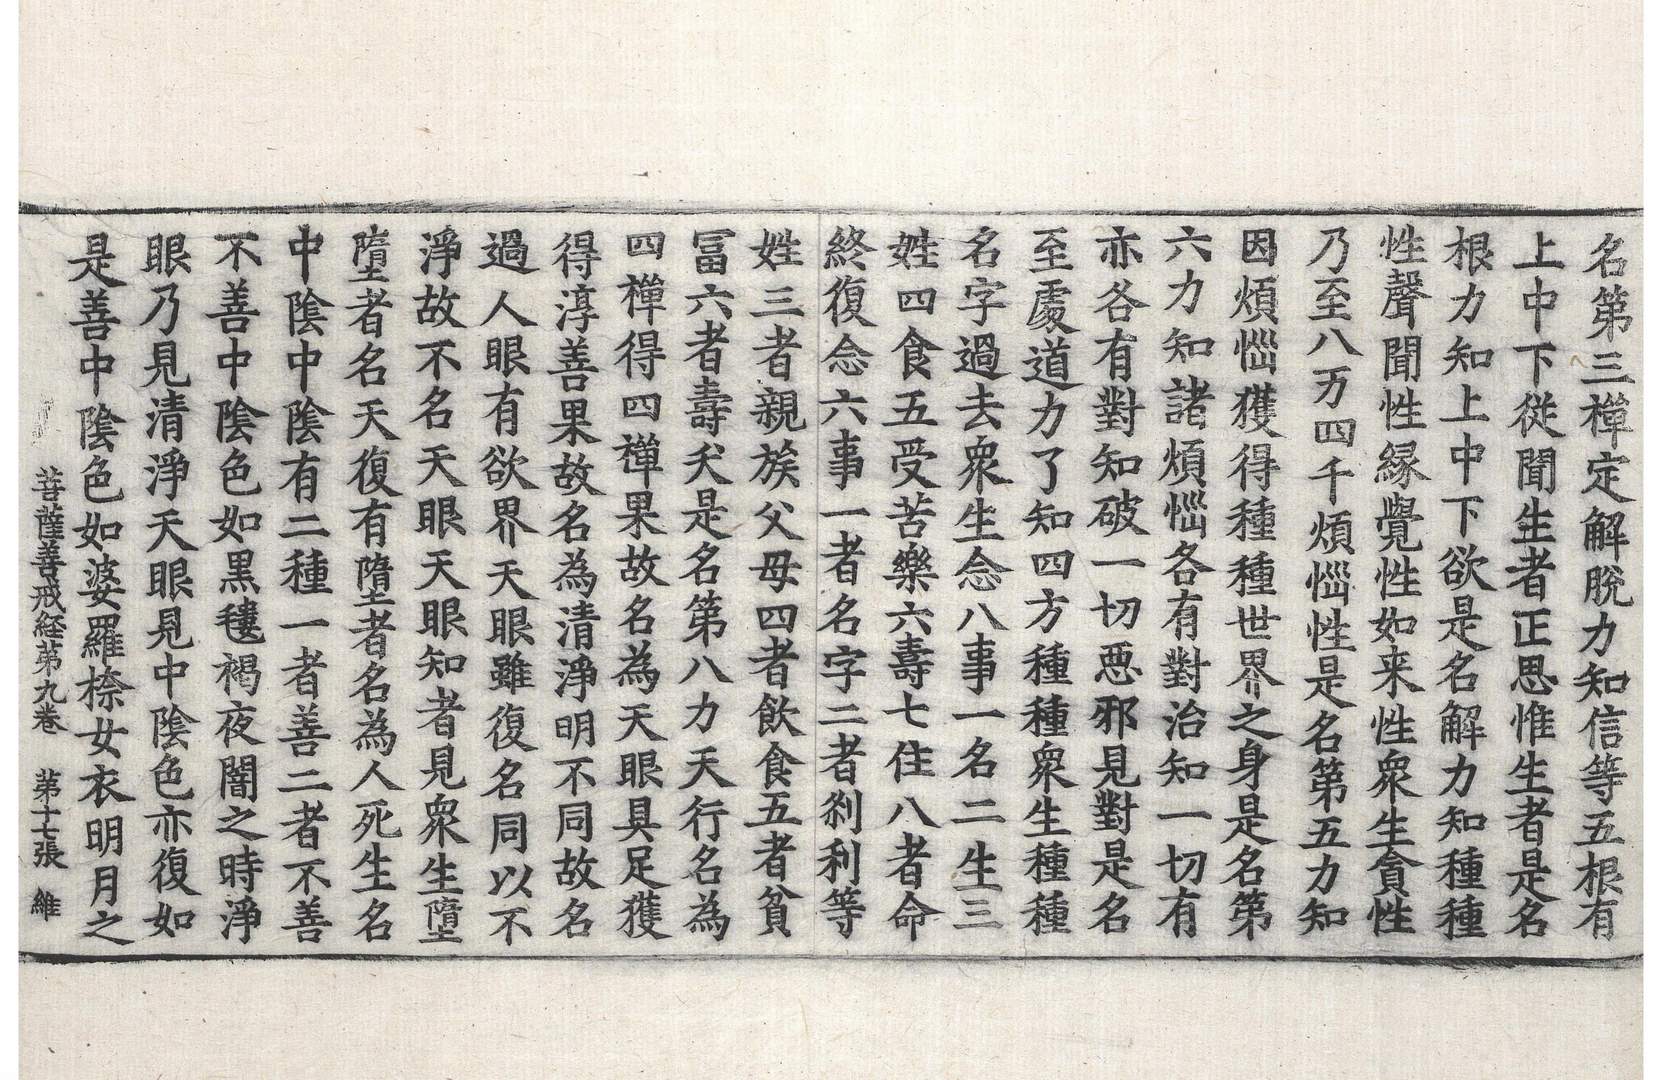 名第三禪定解脫力知信等五根有
上中下從聞生者正思惟生者是名
根力知上中下欲是名解力知種種
性聲聞性緣覺性如来性眾生貪性
乃至八万四千煩惱性是名第五力知
因煩惱獲得種種世界之身是名第
六力知諸煩惱各有對治知一切有
亦各有對知破一切惡邪見對是名
至處道力了知四方種種眾生種種
名字過去眾生念八事一名二生三
姓四食五受苦樂六壽七住八者命
終復念六事一者名字二者刹利等
姓三者親族父母四者飲食五者貧
冨六者壽夭是名第八力天行名為
四禪得四禪果故名為天眼具足獲
得淳善果故名為清淨明不同故名
過人眼有欲界天眼雖復名同以不
淨故不名天眼天眼知者見眾生墮
墮者名天復有墮者名為人死生名
中陰中陰有二種一者善二者不善
不善中陰色如黒氀褐夜闇之時淨
眼乃見清淨天眼見中陰色亦復如
是善中陰色如婆羅㮈女衣明月之
菩薩善戒経第九卷　第十七張　維